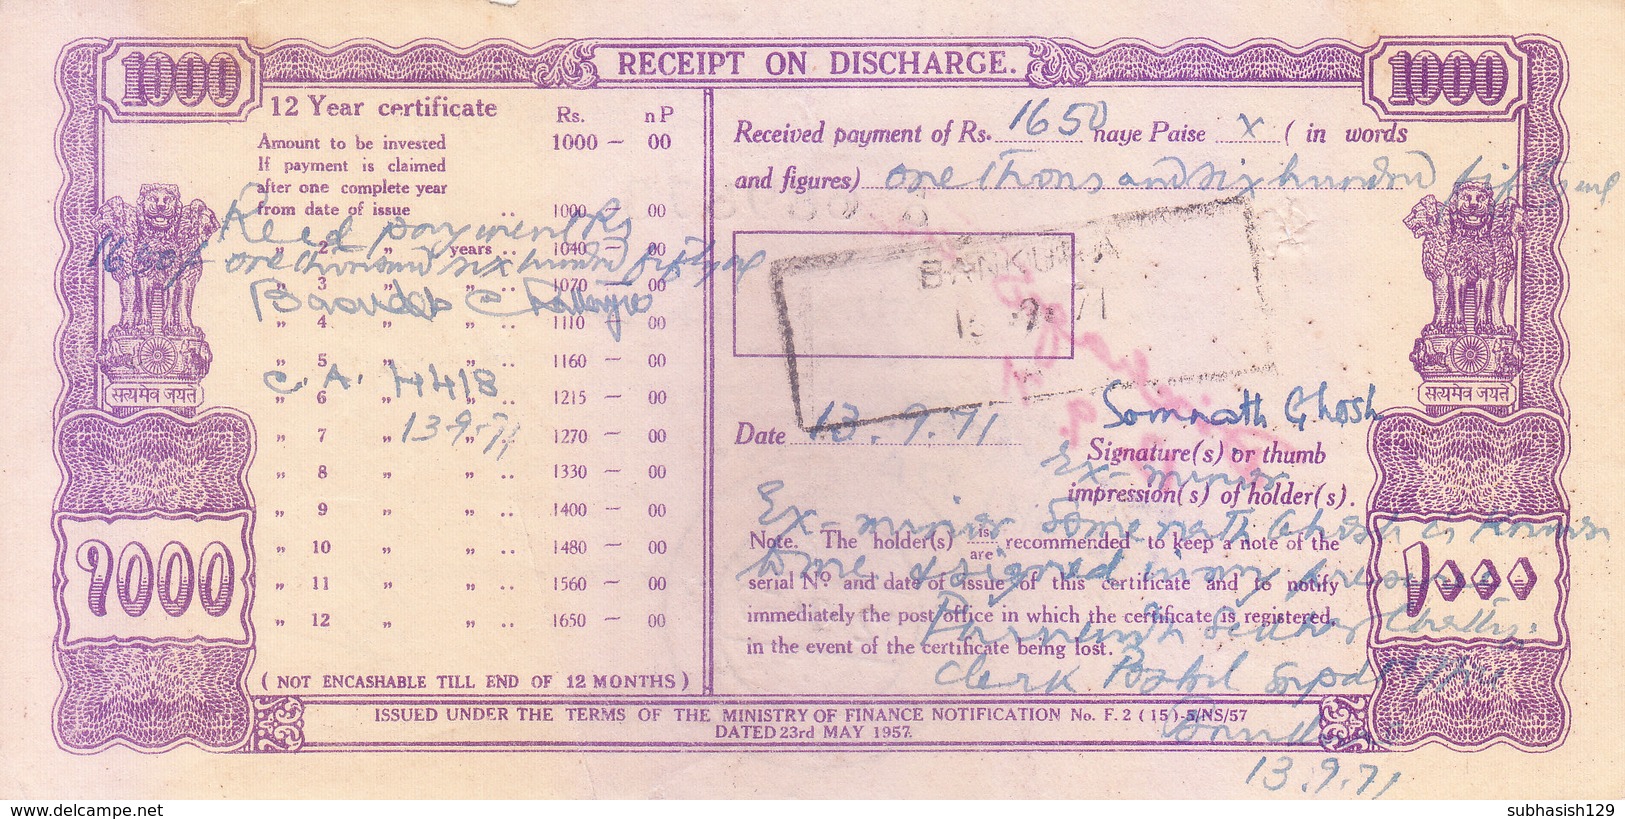 RECEIPT ON DISCHARGE.
1000
1000
12 Year certificate
Rs. nP
Amount to be invested 1000 — 00
If payment is claimed
after one complete year
from date of issue .. 1000 — 00
„ 2 „ years .. 1040 — 00
„ 3 „ „ .. 1070 — 00
„ 4 „ „ .. 1110 00
„ 5 „ „ .. 1160 — 00
„ 6 „ „ .. 1215 — 00
„ 7 „ „ .. 1270 — 00
„ 8 „ „ .. 1330 — 00
„ 9 „ „ .. 1400 — 00
„ 10 „ „ .. 1480 — 00
„ 11 „ „ .. 1560 — 00
„ 12 „ „ .. 1650 — 00
(NOT ENCASHABLE TILL END OF 12 MONTHS)
payment Rs
1650/- one thousand six hundred fifty
C.A. 4418
13.9.71
सत्यमेव जयते
१०००
Received payment of Rs. 1650 naye Paise x (in words
and figures) one thousand six hundred fifty
BANKURA
71
Date 13.9.71
Somnath Ghosh
Signature(s) or thumb
Ex-minor
impression(s) of holder(s).
Ex-minor Somenath Ghosh is known
to me signed in my presence
Note. The holder(s) is/are recommended to keep a note of the
serial Nº and date of issue of this certificate and to notify
immediately the post office in which the certificate is registered,
in the event of the certificate being lost.
Clerk Postal
13.9.71
सत्यमेव जयते
ISSUED UNDER THE TERMS OF THE MINISTRY OF FINANCE NOTIFICATION No. F. 2 (15)-5/NS/57
DATED 23rd MAY 1957.
subhasish129